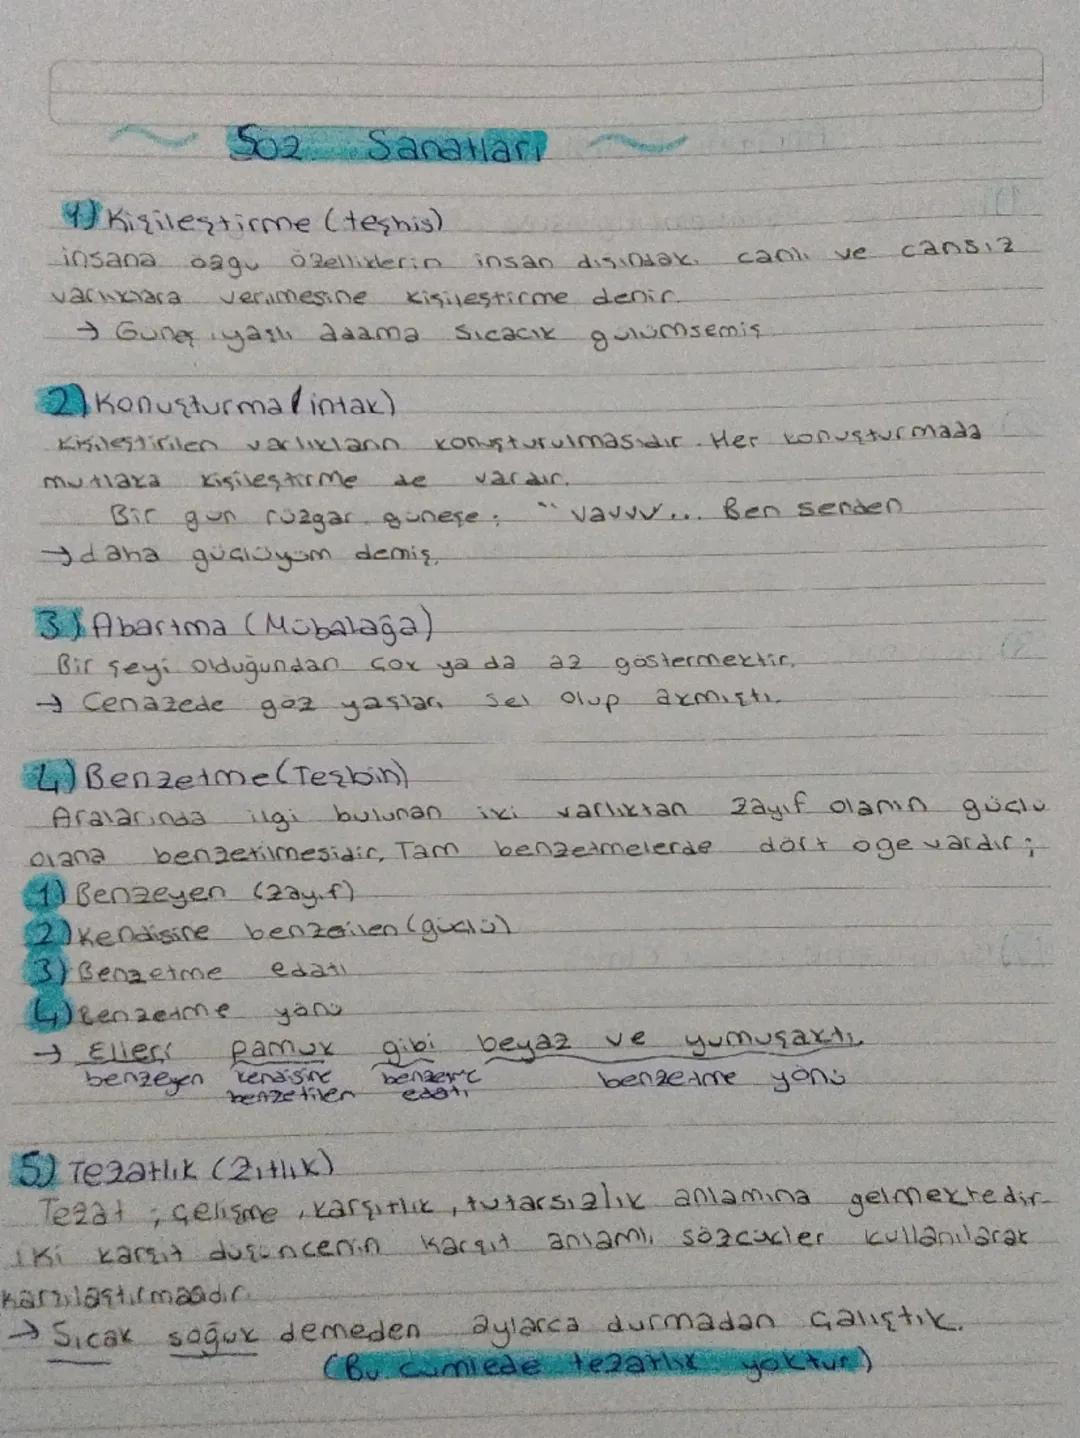 Söz Sanatları
1) Kişileştirme (teşhis)
insana özgü özelliklerin insan dışındaki canlı ve cansız
varlıklara verilmesine kişileştirme denir.
→ Güneş yaşlı adama sıcacık gülümsemiş
2) Konuşturma (intak)
Kişileştirilen varlıkların konuşturulmasıdır. Her konuşturmada
mutlaka kişileştirme de vardır.
Bir gün rüzgar güneşe: "Vavvv... Ben senden
→ daha güçlüyüm demiş.
3) Abartma (Mübalağa)
Bir şeyi olduğundan çok ya da az göstermektir.
→ Cenazede göz yaşları sel olup akmıştı.
4) Benzetme (Teşbih)
Aralarında ilgi bulunan iki varlıktan zayıf olanın güçlü
olana benzetilmesidir. Tam benzetmelerde dört öge vardır;
1) Benzeyen (zayıf)
2) Kendisine benzetilen (güçlü)
3) Benzetme edatı
4) Benzetme yönü
→ Elleri pamuk gibi beyaz ve yumuşaktı.
benzeyen kendisine benzetme benzetme yönü
benzetilen edatı
5) Tezatlık (Zıtlık)
Tezat; Çelişme, karşıtlık, tutarsızlık anlamına gelmektedir.
İki karşıt düşüncenin karşıt anlamlı sözcükler kullanılarak
karşılaştırmasıdır.
→ Sıcak soğuk demeden aylarca durmadan çalıştık.
(Bu cümlede tezatlık yoktur)